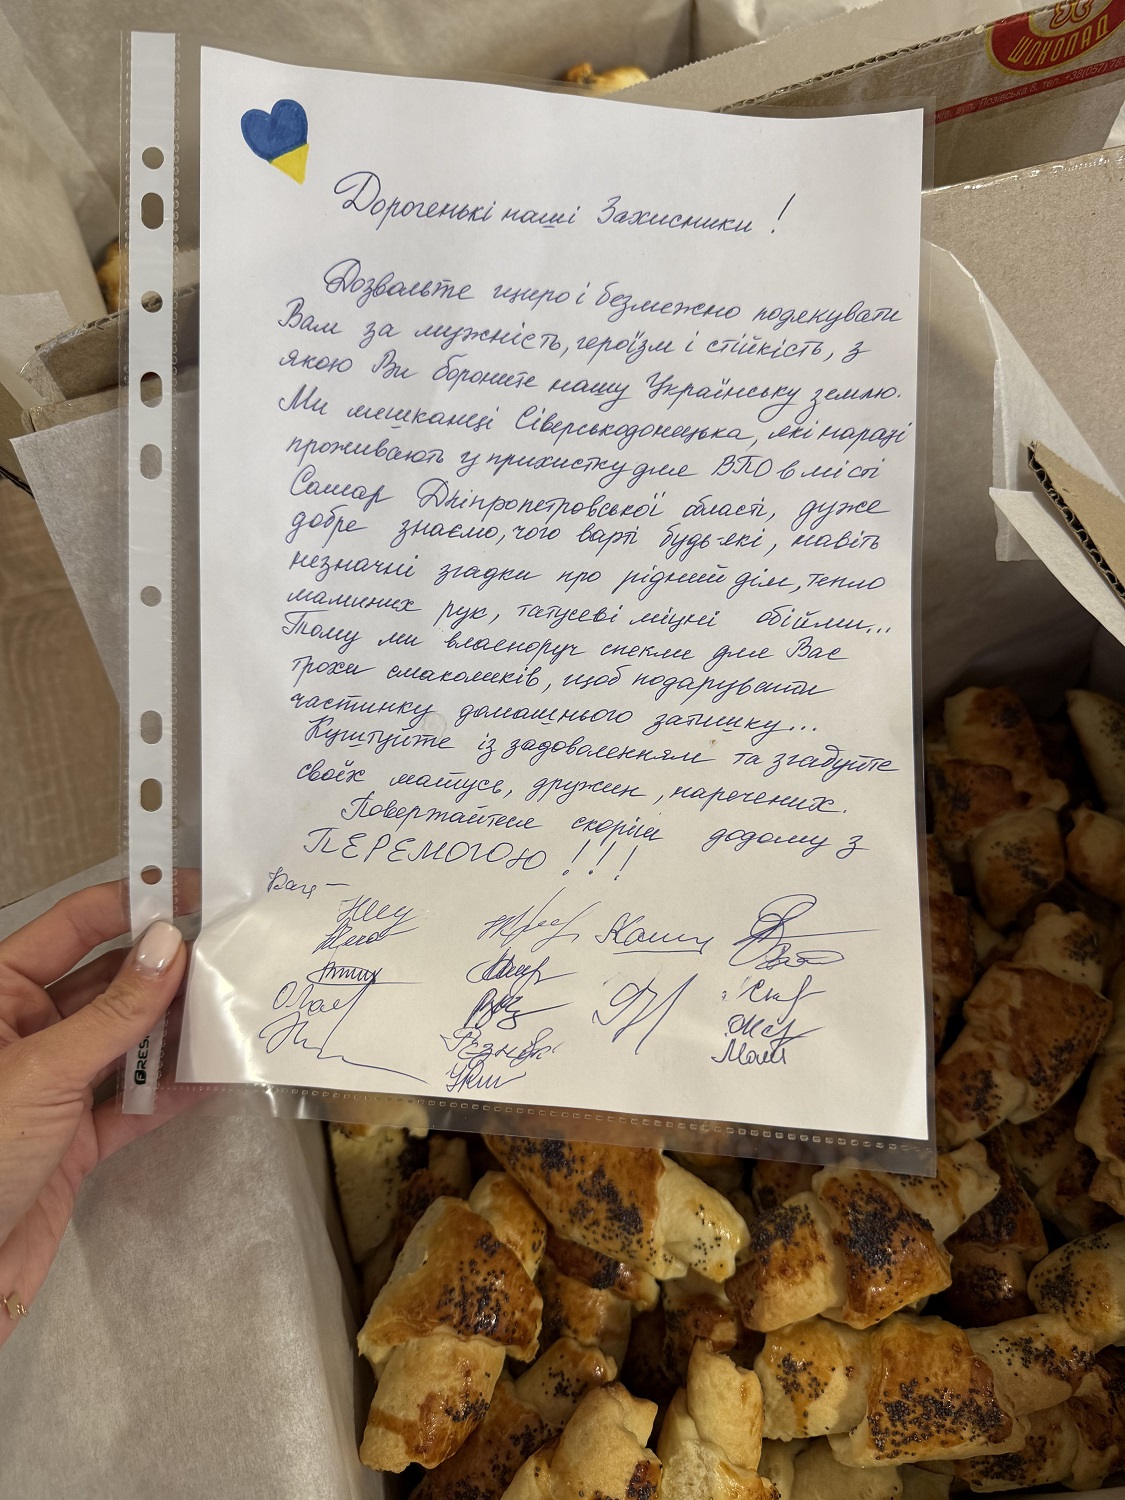 ШОКОЛАД
Дорогенькі наші Захисники!
Дозвольте щиро і безмежно подякувати
Вам за мужність, героїзм і стійкість, з
якою Ви бороните нашу Українську землю.
Ми мешканці Сіверськодонецька, які наразі
проживають у прихистку для ВПО в місті
Самар Дніпропетровської області, дуже
добре знаємо, чого варті будь-які, навіть
незначні згадки про рідний дім, тепло
маминих рук, татусеві міцні обійми...
Тому ми власноруч спекли для Вас
трохи смаколиків, щоб подарувати
частинку домашнього затишку...
Куштуйте із задоволенням та згадуйте
своїх матусь, дружин, наречених.
Повертайтеся скоріш додому з
ПЕРЕМОГОЮ!!!